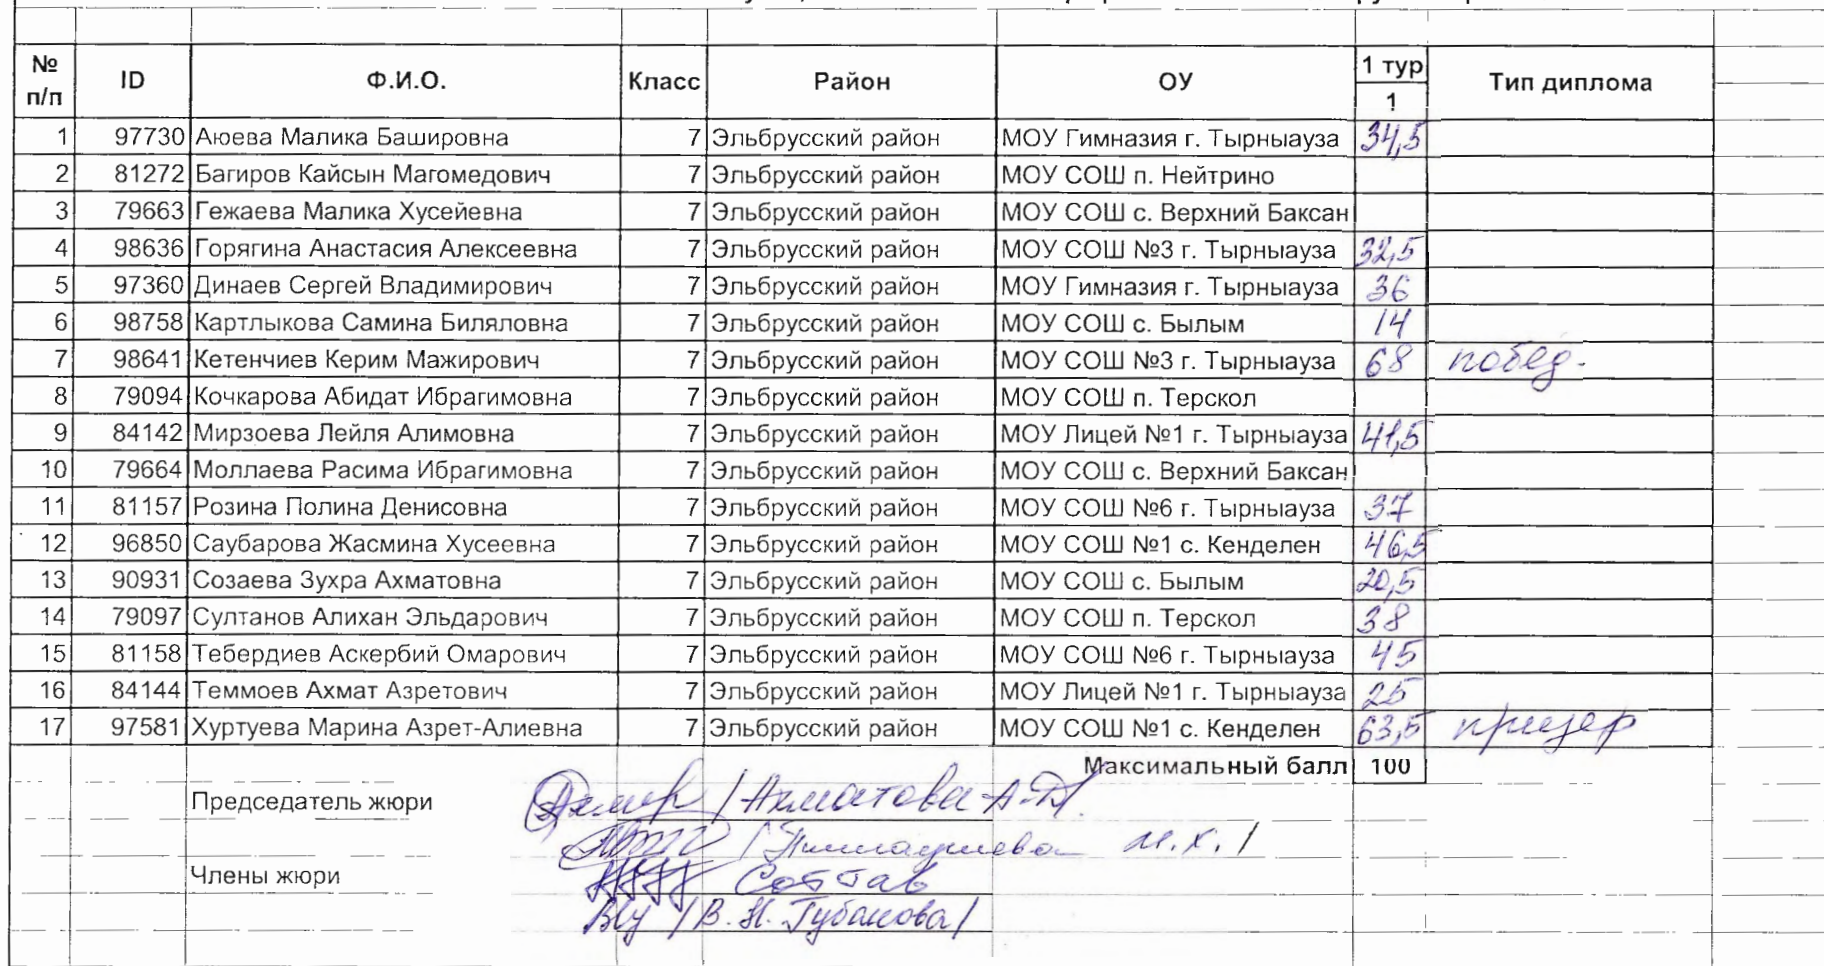 № п/п ID Ф.И.О. Класс Район ОУ 1 тур 1 Тип диплома
1 97730 Аюева Малика Башировна 7 Эльбрусский район МОУ Гимназия г. Тырныауза 34,5
2 81272 Багиров Кайсын Магомедович 7 Эльбрусский район МОУ СОШ п. Нейтрино
3 79663 Гежаева Малика Хусейевна 7 Эльбрусский район МОУ СОШ с. Верхний Баксан
4 98636 Горягина Анастасия Алексеевна 7 Эльбрусский район МОУ СОШ №3 г. Тырныауза 32,5
5 97360 Динаев Сергей Владимирович 7 Эльбрусский район МОУ Гимназия г. Тырныауза 36
6 98758 Картлыкова Самина Биляловна 7 Эльбрусский район МОУ СОШ с. Былым 14
7 98641 Кетенчиев Керим Мажирович 7 Эльбрусский район МОУ СОШ №3 г. Тырныауза 68 побед.
8 79094 Кочкарова Абидат Ибрагимовна 7 Эльбрусский район МОУ СОШ п. Терскол
9 84142 Мирзоева Лейля Алимовна 7 Эльбрусский район МОУ Лицей №1 г. Тырныауза 41,5
10 79664 Моллаева Расима Ибрагимовна 7 Эльбрусский район МОУ СОШ с. Верхний Баксан
11 81157 Розина Полина Денисовна 7 Эльбрусский район МОУ СОШ №6 г. Тырныауза 37
12 96850 Саубарова Жасмина Хусеевна 7 Эльбрусский район МОУ СОШ №1 с. Кенделен 46,5
13 90931 Созаева Зухра Ахматовна 7 Эльбрусский район МОУ СОШ с. Былым 20,5
14 79097 Султанов Алихан Эльдарович 7 Эльбрусский район МОУ СОШ п. Терскол 38
15 81158 Тебердиев Аскербий Омарович 7 Эльбрусский район МОУ СОШ №6 г. Тырныауза 45
16 84144 Теммоев Ахмат Азретович 7 Эльбрусский район МОУ Лицей №1 г. Тырныауза 25
17 97581 Хуртуева Марина Азрет-Алиевна 7 Эльбрусский район МОУ СОШ №1 с. Кенделен 63,5 призер
Максимальный балл 100
Председатель жюри / Ахматова А.
М.Х. /
Члены жюри
/В. Н. Губанова/